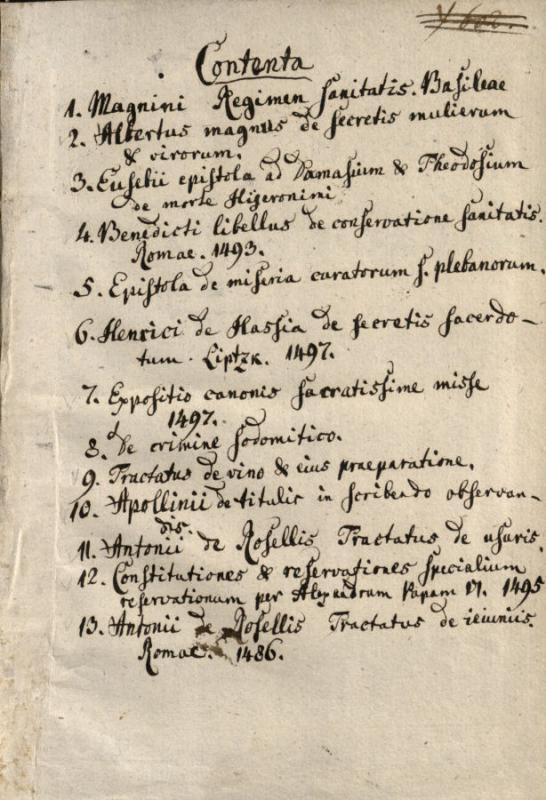 Contenta
1. Magnini Regimen sanitatis. Basileae
2. Albertus magnus de secretis mulierum
& virorum.
3. Eusebii epistola ad Damasium & Theodosium
de morte Hijeronimi
4. Benedicti libellus de conservatione sanitatis.
Romae. 1493.
5. Epistola de miseria curatorum s. plebanorum.
6. Henrici de Hassia de secretis sacerdo-
tum. Liptzk. 1497.
7. Expositio canonis sacratissime misse
1497.
8. De crimine sodomitico.
9. Tractatus de vino & eius praeparatione.
10. Apollinii de titulis in scribendo observan-
dis.
11. Antonii de Rosellis Tractatus de usuris.
12. Constitutiones & reservationes specialium
reservationum per Alexandrum Papam VI. 1495
13. Antonii de Rosellis Tractatus de ieiuniis.
Romae. 1486.